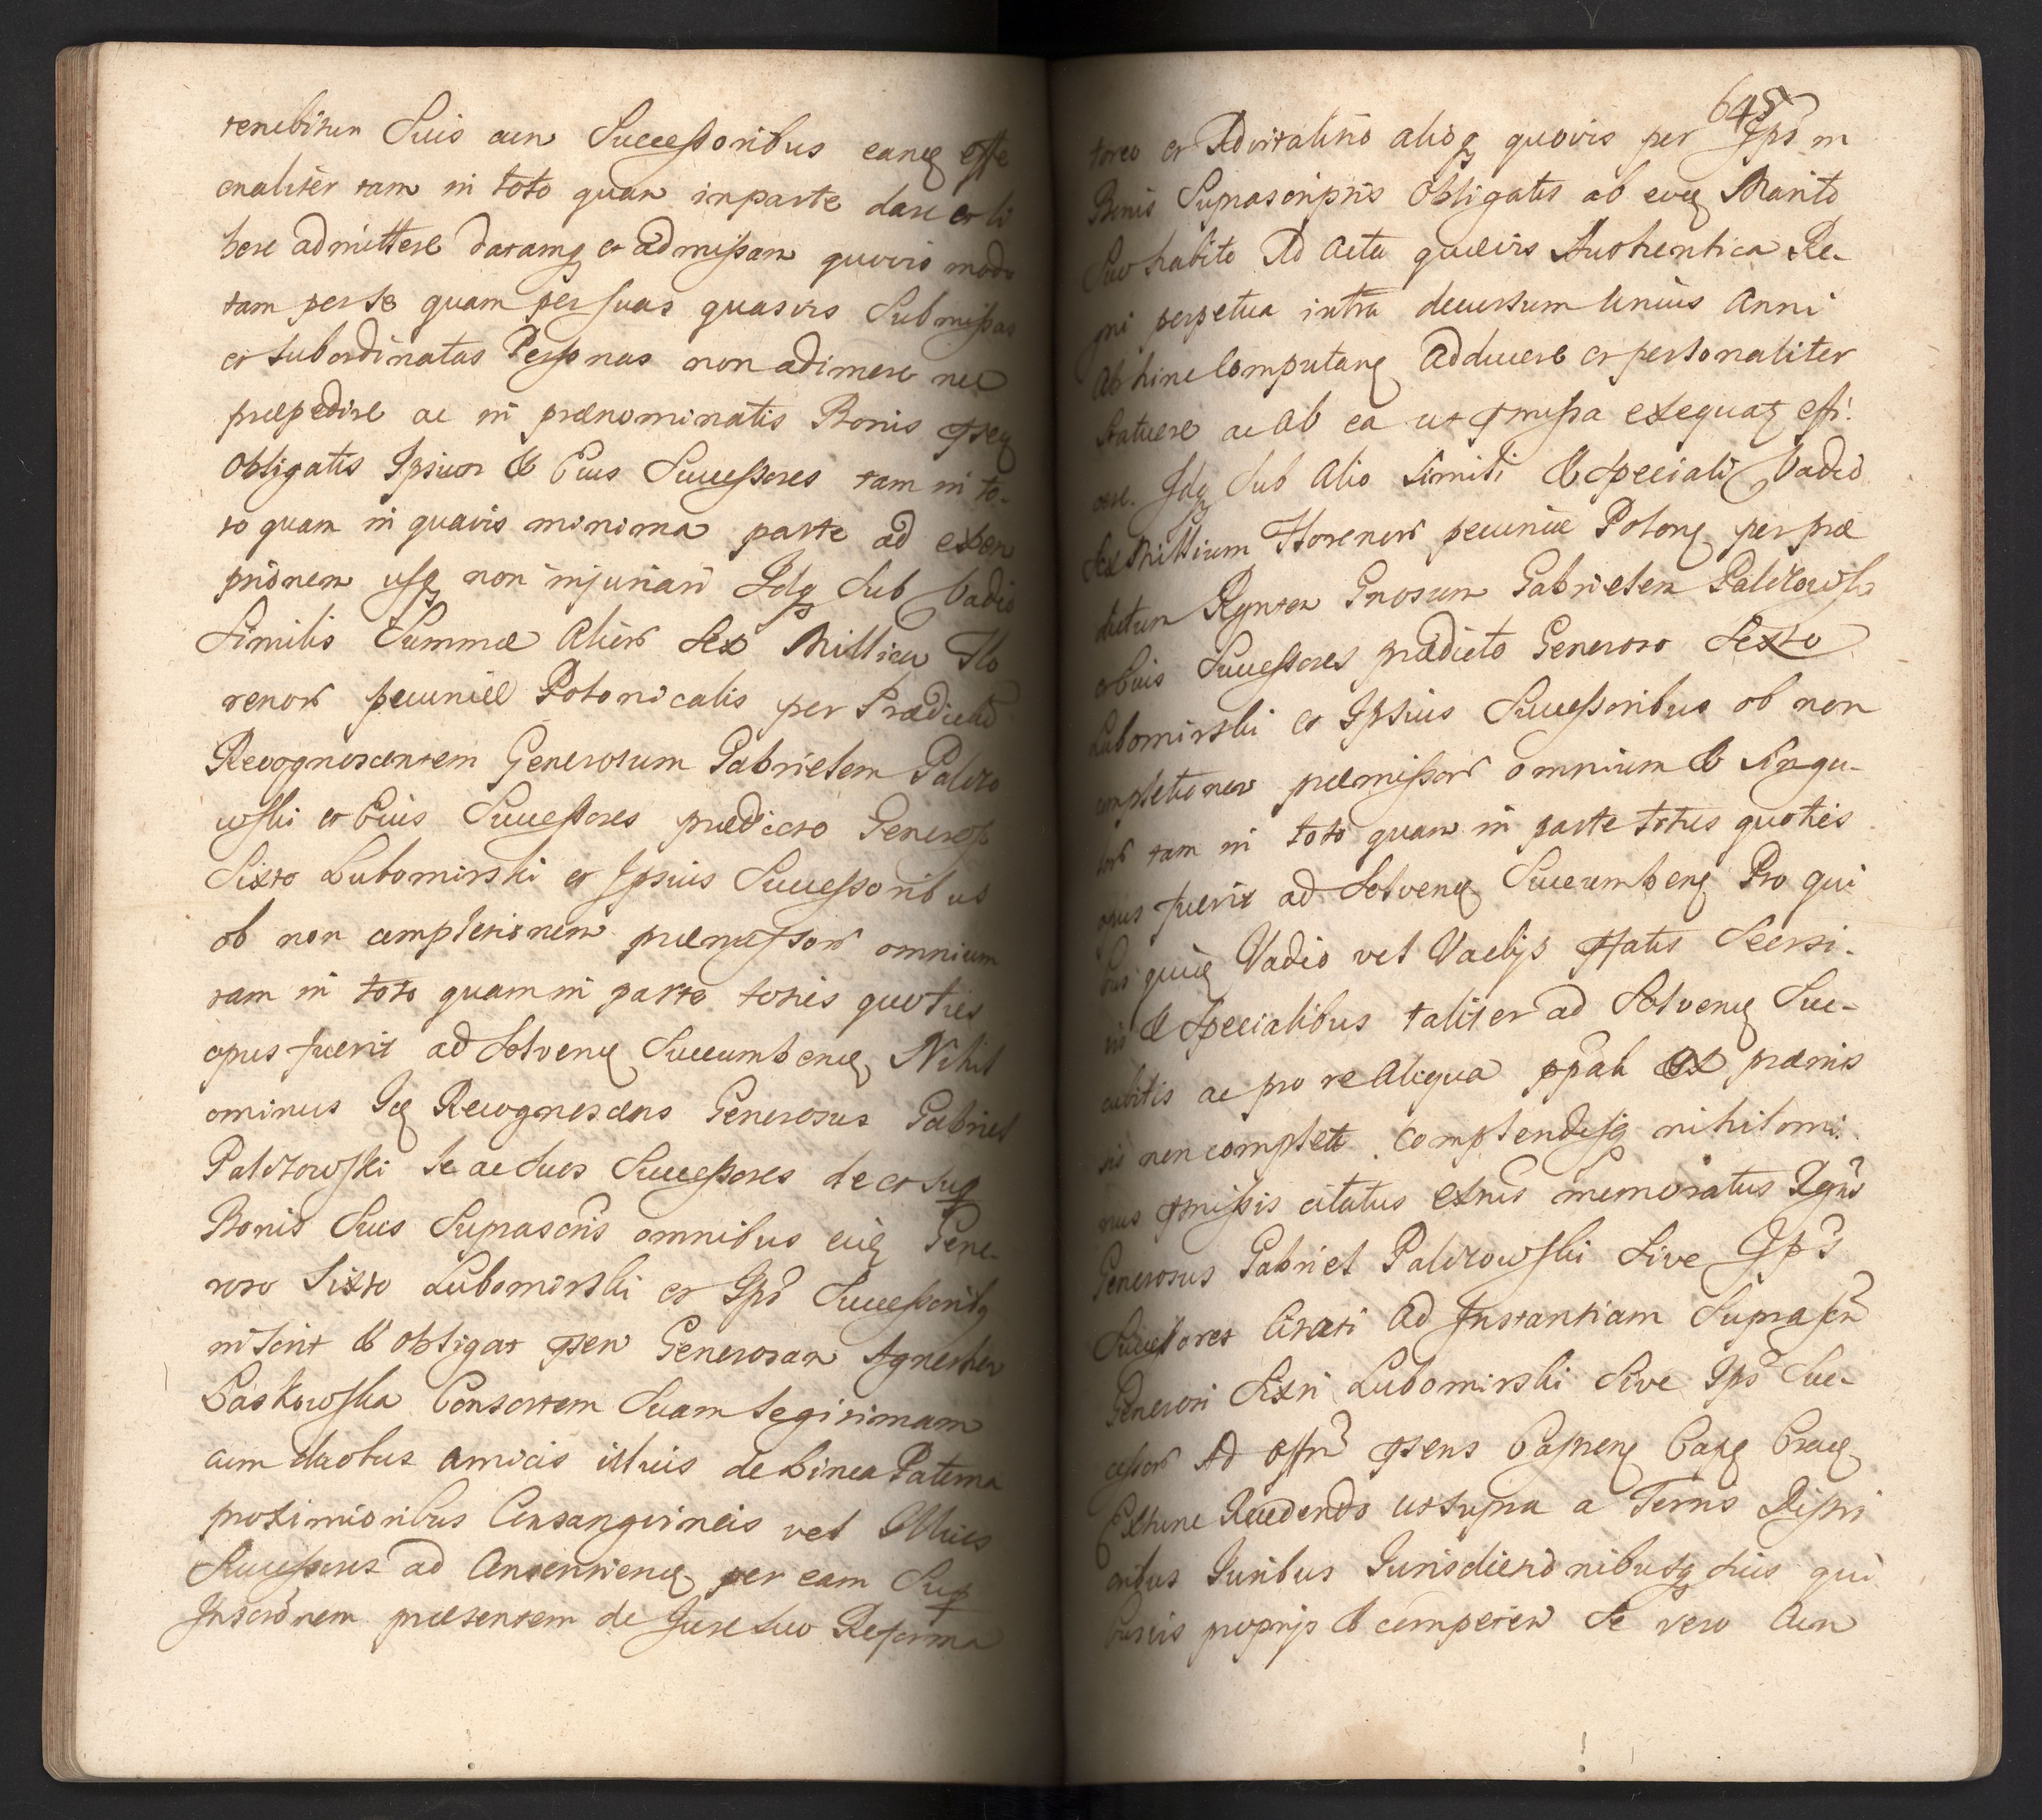 tenebitur Suis cum Successoribus eamq effe
ctualiter tam in toto quam in parte dare et li
bere admittere datamq et admissam quovis modo
tam per se quam per suas quasvis Submissas
et subordinatas Personas non adimere nec
præpedire ac in prænominatis Bonis
obligatis Ipsum & Eius Successores tam in to-
to quam in quavis minima parte ad exem
ptionem usq non injuriari Idq Sub Vadio
Similis Summæ alior Sex Milliu Flo
renor pecuniæ Polonicalis per Prædictu
Recognoscentem Generosum Gabrielem Palczo
wski et Eius Successores prædicto Generoso
Sixto Lubomirski et Ipsius Successoribus
ob non completionem præmissor omnium
tam in toto quam in parte toties quoties
opus fuerit ad Solvend Succumbend Nihil
ominus Id Recognoscens Generosus Gabriel
Palczowski Se ac Suos Successores de et sup
Bonis Suis Suprascris omnibus eid Gene-
roso Sixto Lubomirski et Ips Successorib
inscrit & obligat Generosam Agneshen
Laskowska Consortem Suam legitimam
cum duobus amicis illius de Linea Paterna
proximioribus Consanguineis vel Illius
Successores ad Consentiend per eam Sup
Inscronem præsentem de Jure suo Reforma
645
toreo et Advitalitio alioq quovis per Ips in
Bonis Suprascriptis obligatis ab eod Marito
Suo habito Ad Acta quævis Authentica Re-
gni perpetua intra decursum Unius Anni
Ab hinc Computand adducere et personaliter
Statuere ac ab ea ut præmissa exequat effi:
cere. Idq Sub Alio Simili & Speciali Vadio
Sex Millium Florenor pecuniæ Polon per præ
dictum Rgnten Gnosum Gabrielem Palczowski
et Eius Successores prædicto Generoso Sexto
Lubomirski et Ipsius Successoribus ob non
completionem præmissor omnium & Singu-
lor tam in toto quam in parte toties quoties
opus fuerit ad Solvend Succumbend Pro qui
bus quid Vadio vel Vadijs
& Specialibus taliter ad Solvend Suc-
cubitis ac pro re aliqua ex præmis
sis non complete complendisq nihilomi:
nus præmissis citatus extnus memoratus Rgns
Generosus Gabriel Palczowski Sive Ips
Successores Citati Ad Instantiam Suprascr
Generosi Sixti Lubomirski Sive Ips Suc-
cessor Ad offm Capnen
Extunc Recedendo ut supra a Terris Distri
ctibus Juribus Jurisdictionibusq suis qui
busvis proprijs & competen Se vero cum